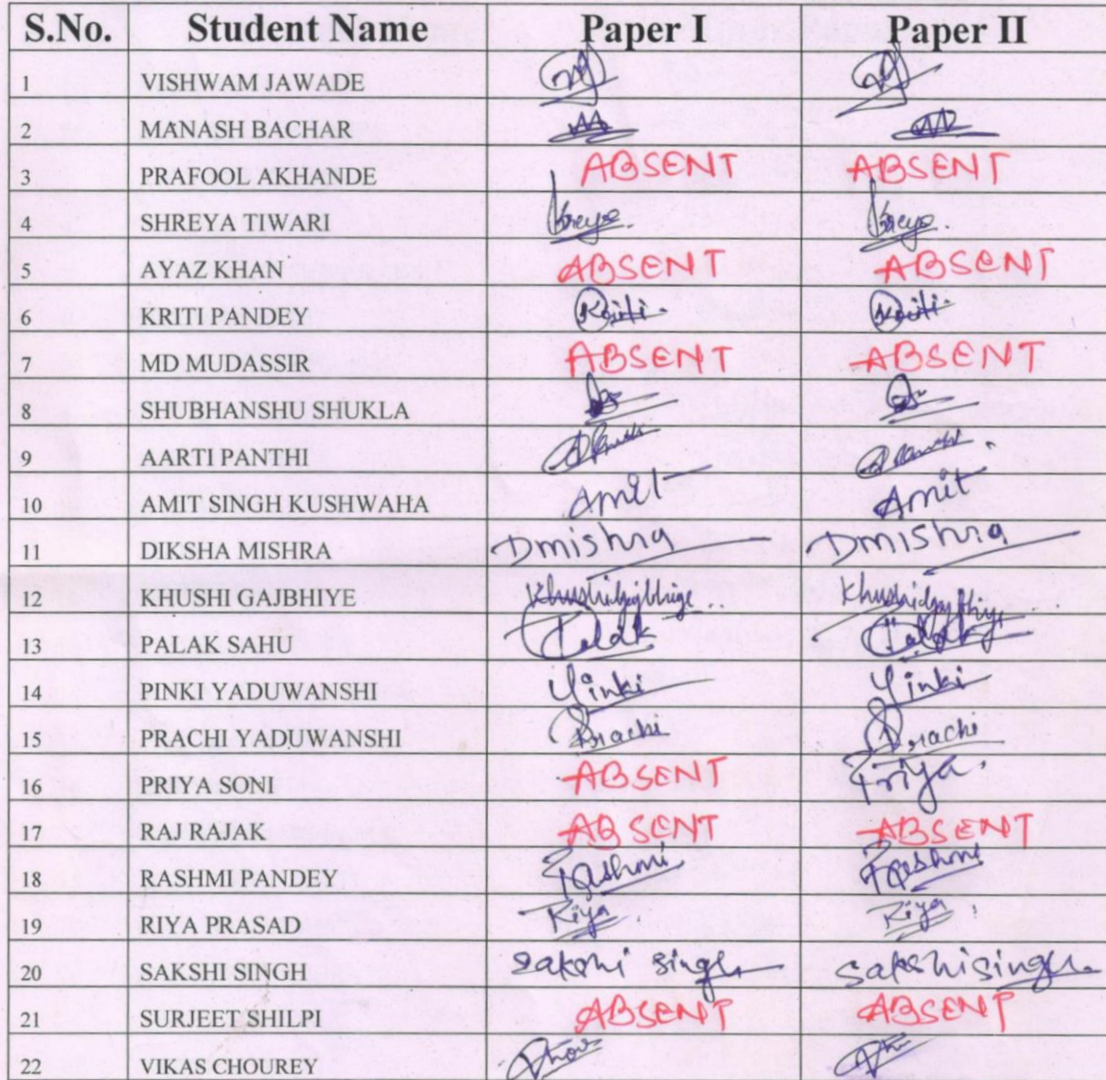 S.No. Student Name Paper I Paper II
1 VISHWAM JAWADE
2 MANASH BACHAR
3 PRAFOOL AKHANDE ABSENT ABSENT
4 SHREYA TIWARI
5 AYAZ KHAN ABSENT ABSENT
6 KRITI PANDEY Kriti Kriti
7 MD MUDASSIR ABSENT ABSENT
8 SHUBHANSHU SHUKLA
9 AARTI PANTHI
10 AMIT SINGH KUSHWAHA Amit Amit
11 DIKSHA MISHRA Dmishra Dmishra
12 KHUSHI GAJBHIYE Khushi Gajbhiye
13 PALAK SAHU Palak Palak
14 PINKI YADUWANSHI Pinki Pinki
15 PRACHI YADUWANSHI Prachi Prachi
16 PRIYA SONI ABSENT Priya
17 RAJ RAJAK ABSENT ABSENT
18 RASHMI PANDEY Rashmi Rashmi
19 RIYA PRASAD Riya Riya
20 SAKSHI SINGH Sakshi Singh Sakshi Singh
21 SURJEET SHILPI ABSENT ABSENT
22 VIKAS CHOUREY